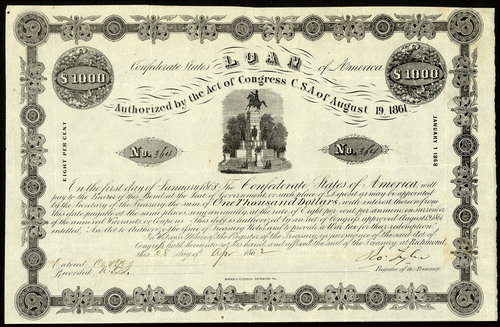 Confederate States LOAN of America
$1000 $1000
Authorized by the Act of Congress C.S.A. of August 19, 1861.
EIGHT PER CENT
JANUARY 1 1868
No. 364 No. 364
On the first day of January 1868 The Confederate States of America, will
pay to the bearer of this Bond at the seat of Government, or such place of Deposit as may be appointed
by the Secretary of the Treasury, the sum of One Thousand Dollars, with interest thereon from
this date payable at the same place, semi-annually, at the rate of Eight per cent per annum, on surrender
of the annexed Warrants, or Coupons. This debt is authorized by an Act of Congress approved August 19, 1861
entitled, An Act to Authorize the issue of Treasury Notes and to provide a War Tax for their redemption.
In Witness Whereof the Register of the Treasury in pursuance of the said Act of
Congress, hath hereunto set his hand and affixed the seal of the Treasury, at Richmond,
this 28 day of Apr 1862
Entered
Recorded
Ro. Tyler
Register of the Treasury.